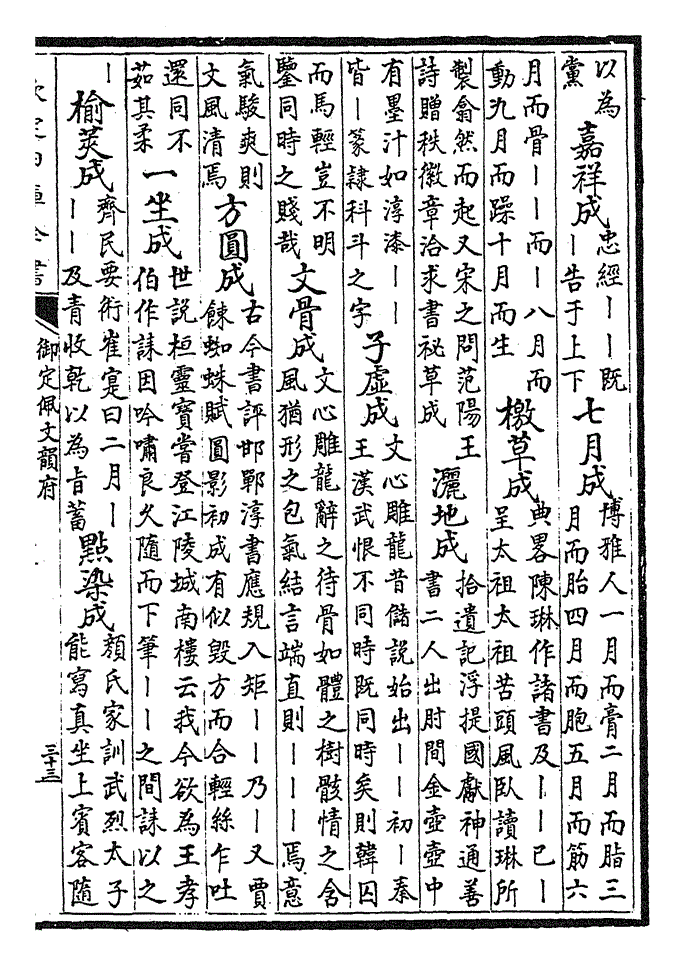 以為黨 嘉祥成 忠經——既—告于上下 七月成 博雅人一月而膏二月而脂三月而胎四月而胞五月而筋六
月而骨——而—八月而動九月而躁十月而生 檄草成 典畧陳琳作諸書及——已—呈太祖太祖苦頭風臥讀琳所
製翕然而起又宋之問范陽王詩贈秩徽章洽求書祕草成 灑地成 拾遺記浮提國獻神通善書二人出肘間金壺壺中
有墨汁如淳漆——皆—篆隸科斗之字 子虛成 文心雕龍昔儲說始出——初—秦王漢武恨不同時既同時矣則韓囚
而馬輕豈不明鑒同時之賤哉 文骨成 文心雕龍辭之待骨如體之樹骸情之含風猶形之包氣結言端直則———焉意
氣駿爽則文風清焉 方圓成 古今書評邯鄲淳書應規入矩——乃—又賈餗蜘蛛賦圓影初成有似毀方而合輕絲乍吐
還同不茹其柔 一坐成 世說桓靈寶嘗登江陵城南樓云我今欲為王孝伯作誄因吟嘯良久隨而下筆——之間誄以之
— 榆莢成 齊民要術崔寔曰二月———及青收乾以為旨蓄 點染成 顏氏家訓武烈太子能寫真坐上賓客隨
欽定四庫全書 御定佩文韻府 三十三